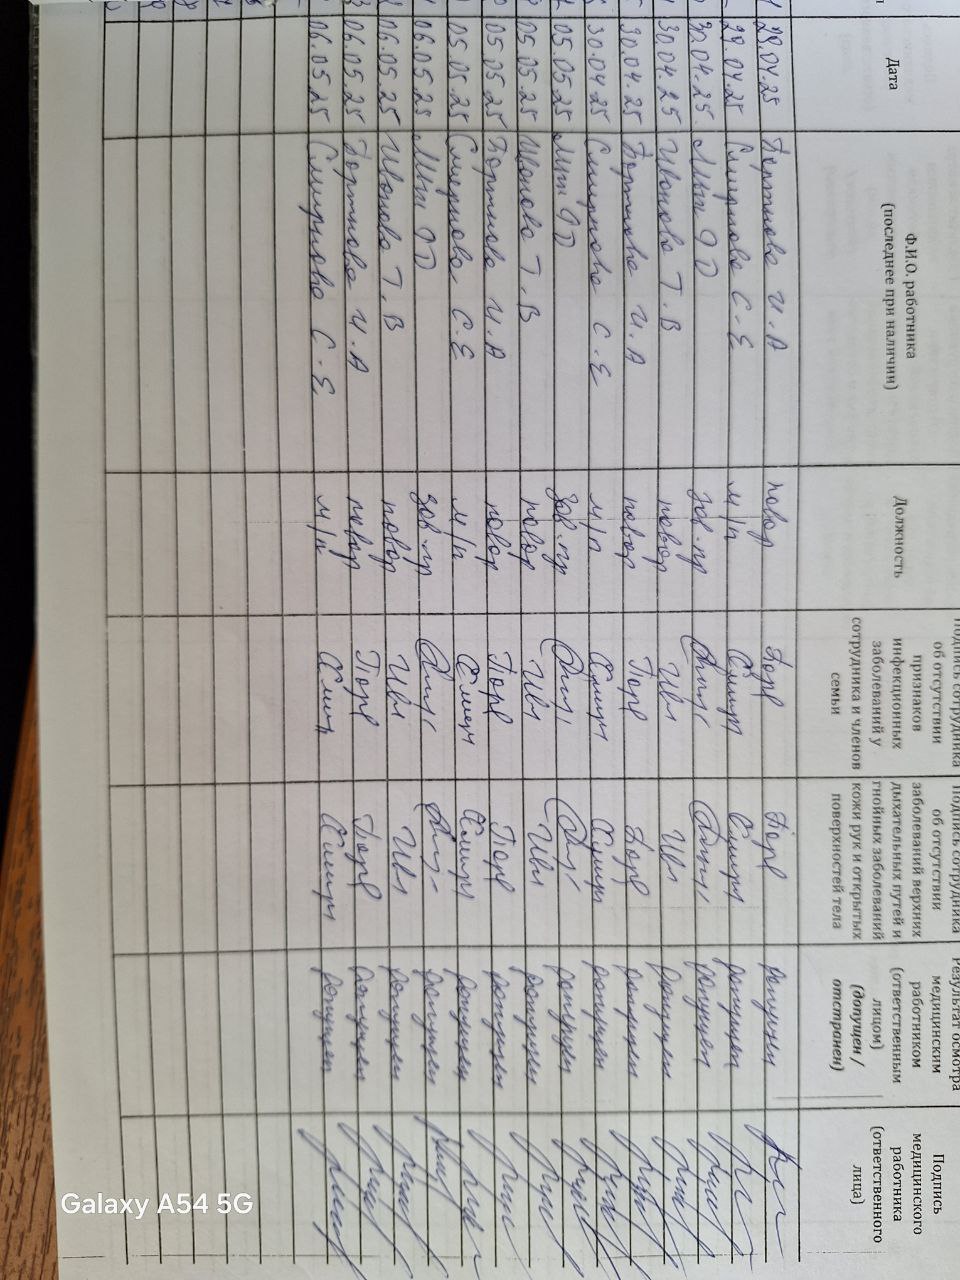 Дата
Ф.И.О. работника
(последнее при наличии)
Должность
Подпись сотрудника
об отсутствии
признаков
инфекционных
заболеваний у
сотрудника и членов
семьи
Подпись сотрудника
об отсутствии
заболеваний верхних
дыхательных путей и
гнойных заболеваний
кожи рук и открытых
поверхностей тела
Результат осмотра
медицинским
работником
(ответственным
лицом)
(допущен /
отстранен)
Подпись
медицинского
работника
(ответственного
лица)
29.04.25 И.А повар допущен
29.04.25 Смирнова С.Е м/п Смирн Смирн допущен
30.04.25. зав.пр допущен
30.04.25 Иванова Т.В повар Ива Ива допущен
30.04.25 И.А повар допущен
30.04.25 Смирнова С.Е м/п Смирн Смирн допущен
05.05.25 зав.пр допущен
05.05.25 Иванова Т.В повар Ива Ива допущен
05.05.25 И.А повар допущен
05.05.25 Смирнова С.Е м/п Смирн Смирн допущен
06.05.25 зав.пр допущен
06.05.25 Иванова Т.В повар Ива Ива допущен
06.05.25 И.А повар допущен
06.05.25 Смирнова С.Е м/п Смирн Смирн допущен
Galaxy A54 5G